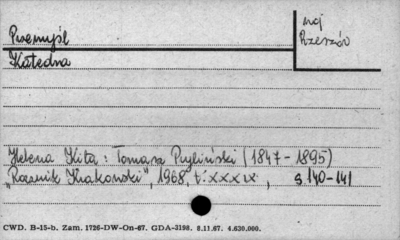 Przemyśl
woj
Rzeszów
Katedra
Helena Kita: Tomasz Pryliński (1847-1895)
"Rocznik Krakowski", 1968, t: XXXIX, s. 140-141
CWD. B-15-b. Zam. 1726-DW-On-67. GDA-3198. 8.11.67. 4.630.000.